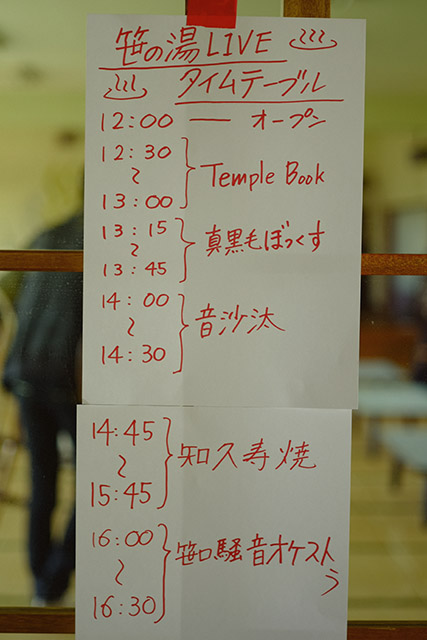 笹の湯LIVE
タイムテーブル
12:00 — オープン
12:30
〜
13:00
Temple Book
13:15
〜
13:45
真黒毛ぼっくす
14:00
〜
14:30
音沙汰
14:45
〜
15:45
知久寿焼
16:00
〜
16:30
笹口騒音オケストラ